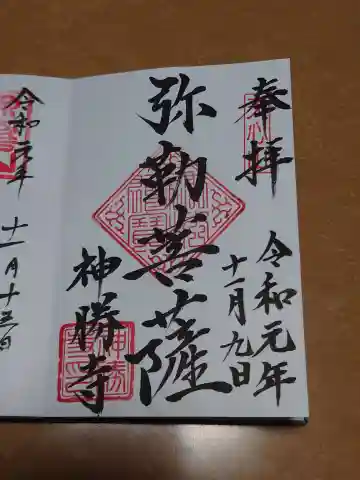 奉拝
令和元年
十一月九日
弥勒菩薩
神勝寺
令和元年
十一月十五日